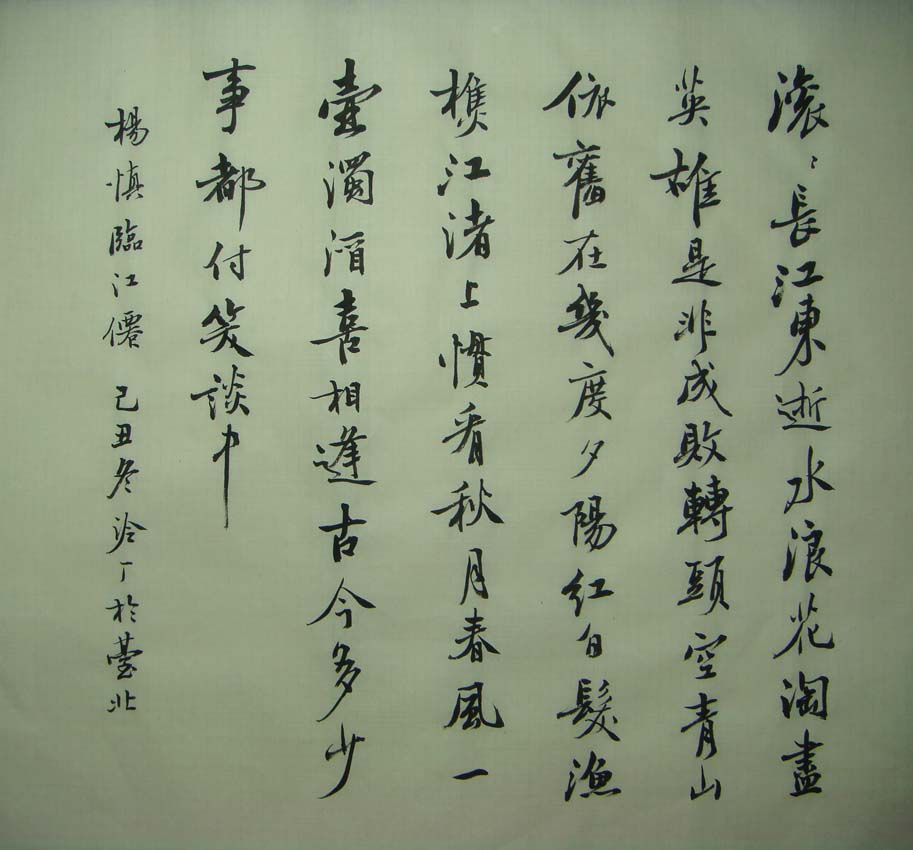 滾〻長江東逝水浪花淘盡
英雄是非成敗轉頭空青山
依舊在幾度夕陽紅白髮漁
樵江渚上慣看秋月春風一
壺濁酒喜相逢古今多少
事都付笑談中
楊慎臨江僊 己丑冬泠丁於臺北